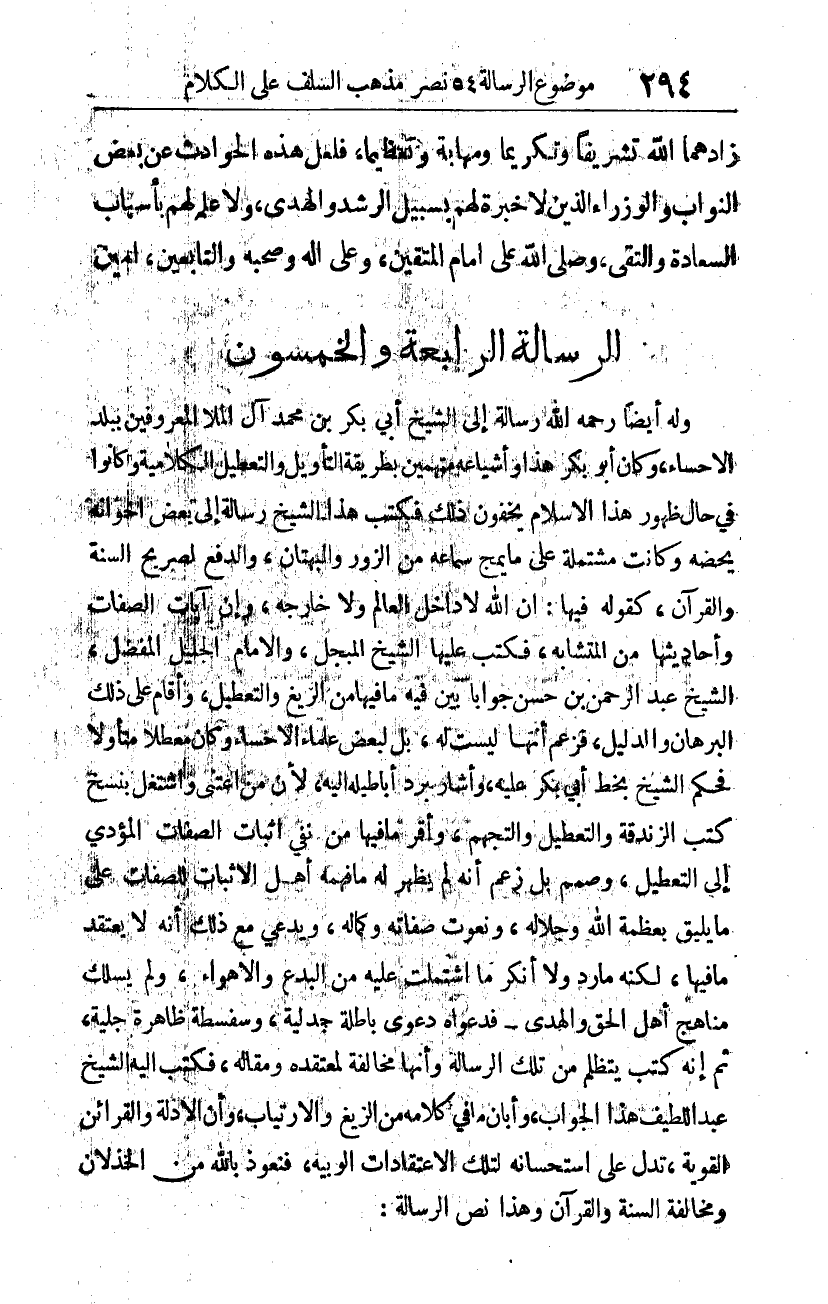 ٢٩٤ موضوع الرسالة ٥٤ نصر مذهب السلف على الكلام
زادهما الله تشريفاً وتكريما ومهابة وتعظيما، فلعل هذه الحوادث عن بعض
النواب والوزراء الذين لا خبرة لهم بسبيل الرشد والهدى، ولا علم لهم بأسباب
السعادة والتقى، وصلى الله على امام المتقين، وعلى اله وصحبه والتابعين، امين
الرسالة الرابعة والخمسون
وله أيضاً رحمه الله رسالة إلى الشيخ أبي بكر بن محمد آل الملا المعروفين ببلد
الاحساء، وكان أبو بكر هذا وأشياعه متهمين بطريقة التأويل والتعطيل الكلامية وكانوا
في حال ظهور هذا الاسلام يخفون ذلك فكتب هذا الشيخ رسالة إلى بعض اخوانه
يحضه وكانت مشتملة على مايمج سماعه من الزور والبهتان، والدفع لصريح السنة
والقرآن، كقوله فيها: ان الله لاداخل العالم ولا خارجه، وإن آيات الصفات
وأحاديثها من المتشابه، فكتب عليها الشيخ المبجل، والامام الجليل المفضل،
الشيخ عبد الرحمن بن حسن جواباً بين فيه مافيها من الزيغ والتعطيل، وأقام على ذلك
البرهان والدليل، فزعم أنها ليست له، بل لبعض علماء الاحساء وكان معطلا متأولا
فحكم الشيخ بخط أبي بكر عليه، وأشار برد أباطيله اليه، لأن من اعتنى واشتغل بنسخ
كتب الزندقة والتعطيل والتجهم، وأقر مافيها من نفي اثبات الصفات المؤدي
إلى التعطيل، وصمم بل زعم أنه لم يظهر له مافهمه أهل الاثبات للصفات على
مايليق بعظمة الله وجلاله، ونعوت صفاته وكماله، ويدعي مع ذلك أنه لا يعتقد
مافيها، لكنه مارد ولا أنكر ما اشتملت عليه من البدع والاهواء، ولم يسلك
مناهج أهل الحق والهدى ـ فدعواه دعوى باطلة جدلية، وسفسطة ظاهرة جلية،
ثم إنه كتب يتظلم من تلك الرسالة وأنها مخالفة لمعتقده ومقاله، فكتب اليه الشيخ
عبد اللطيف هذا الجواب، وأبان مافي كلامه من الزيغ والارتياب، وأن الادلة والقرائن
القوية، تدل على استحسانه لتلك الاعتقادات الوبيه، فنعوذ بالله من الخذلان
ومخالفة السنة والقرآن وهذا نص الرسالة: